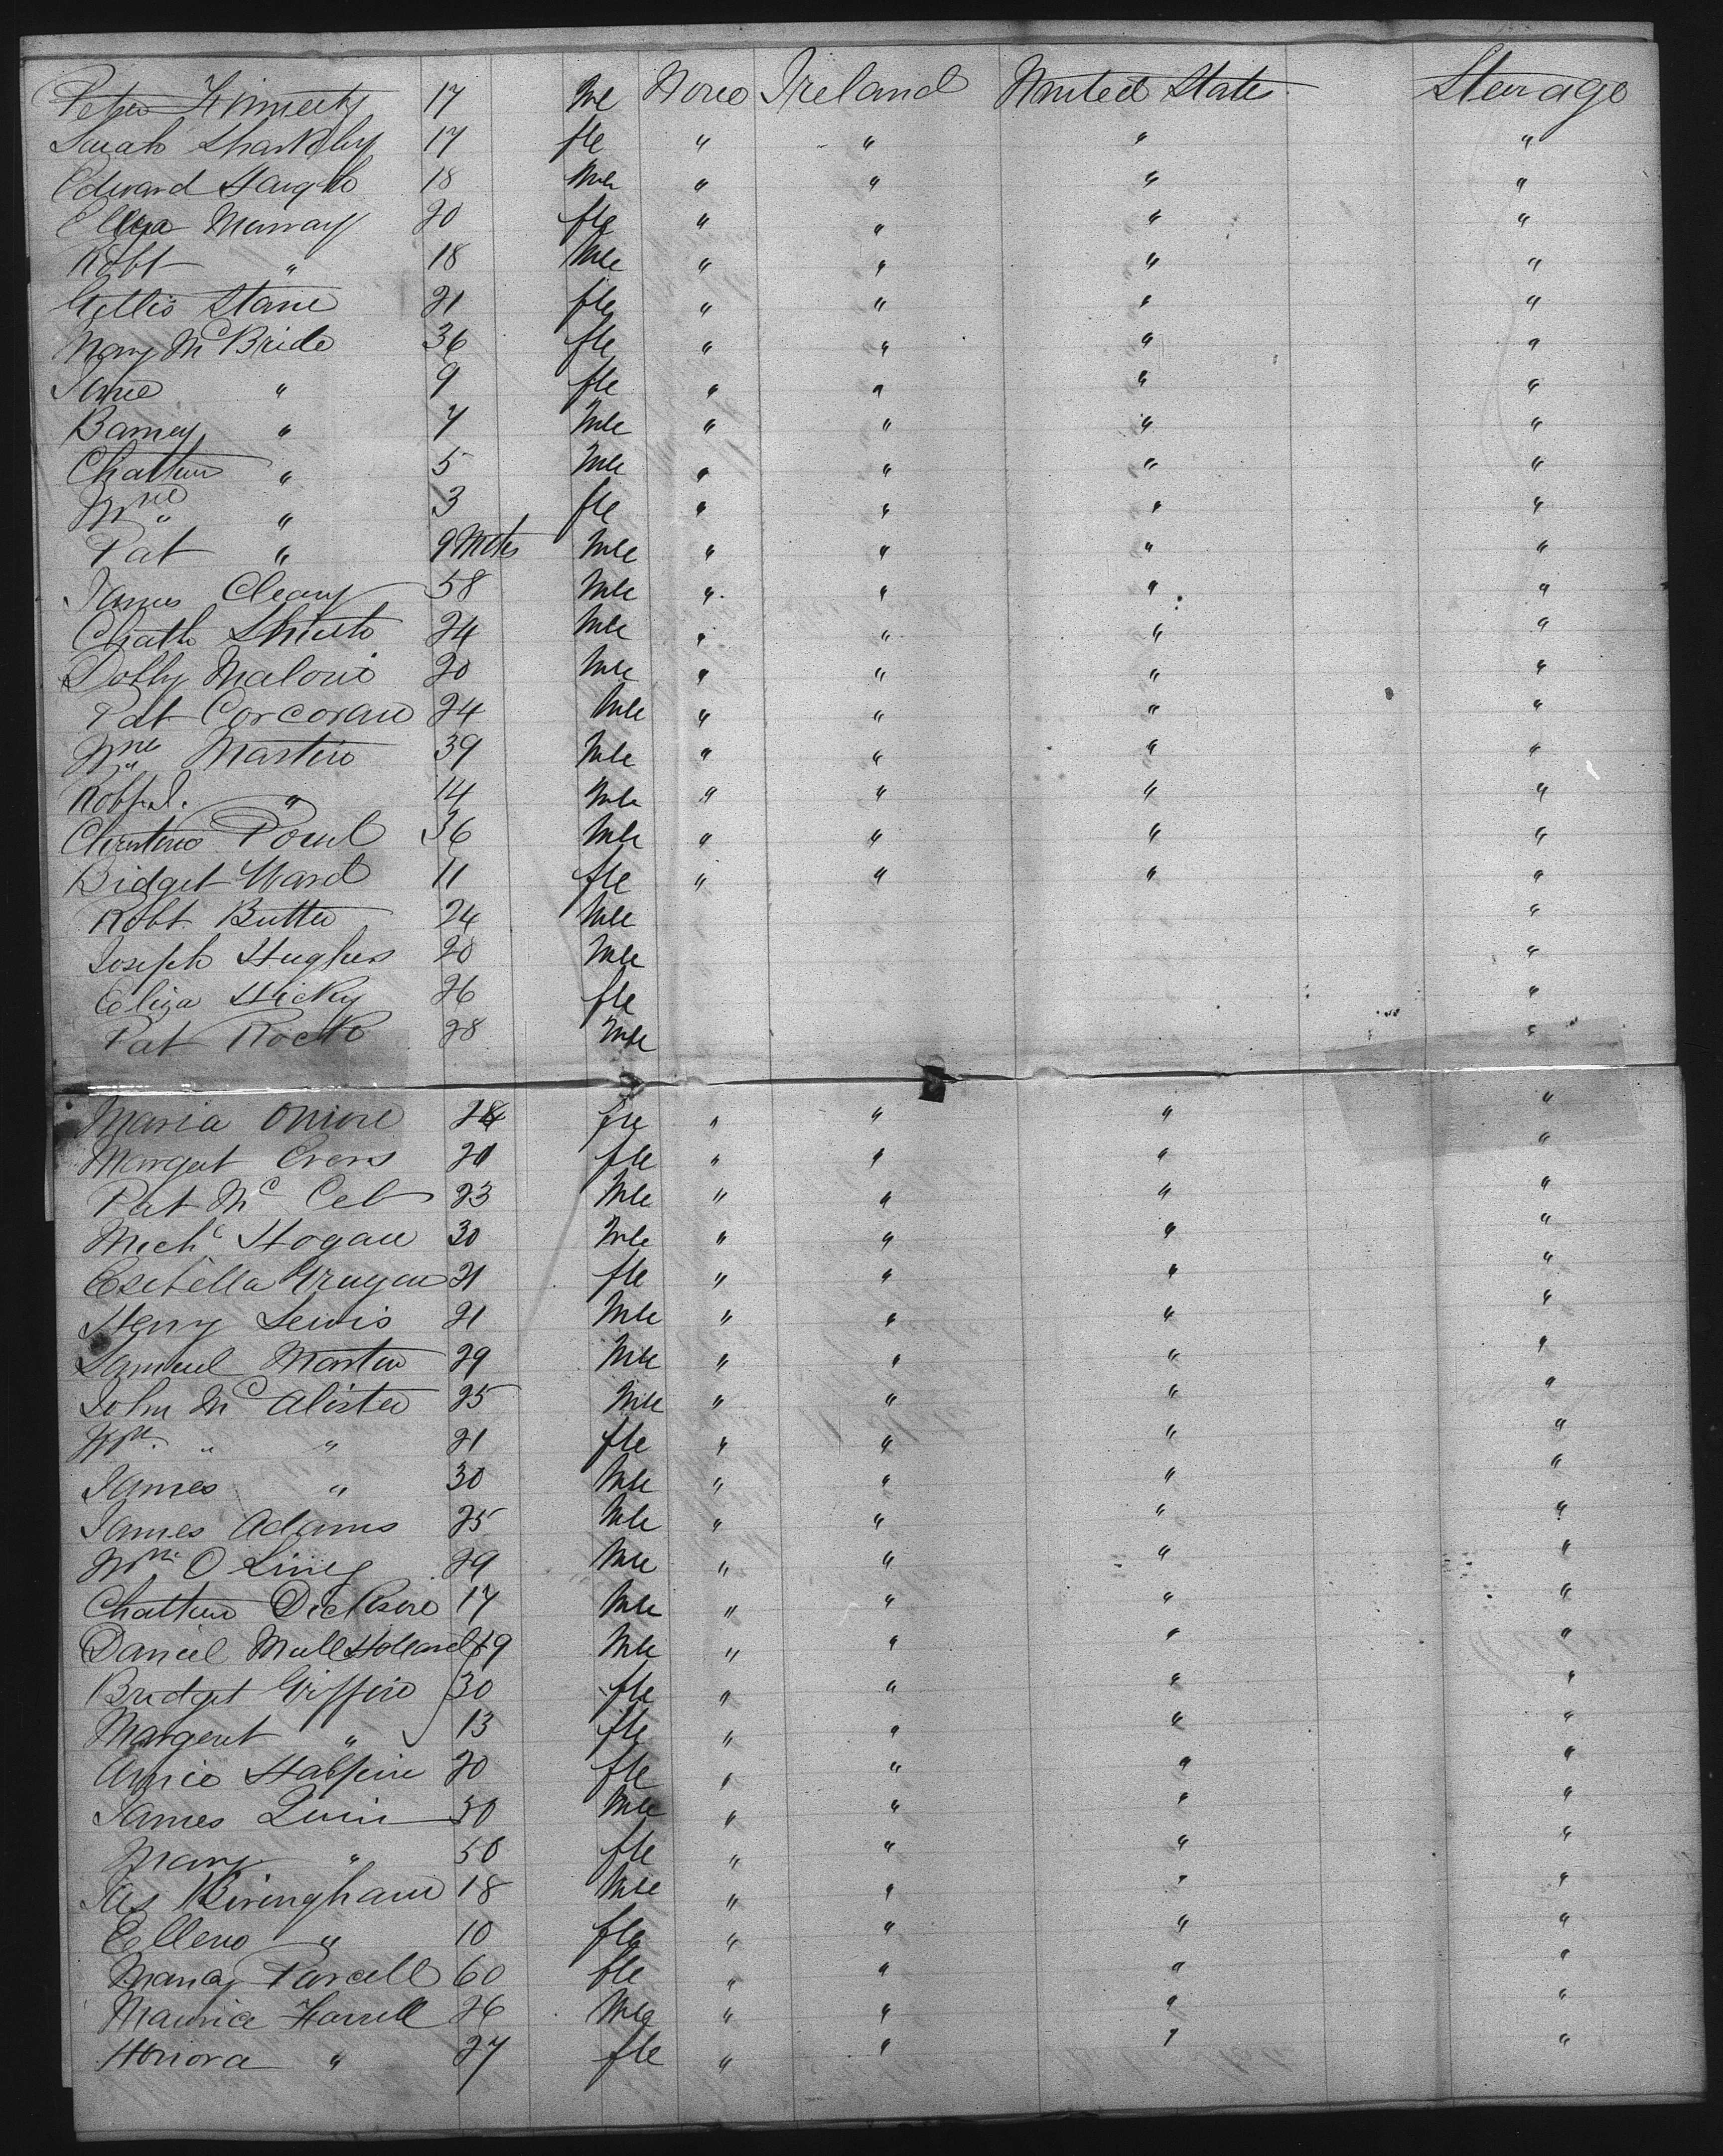 Peter Finnerty 17 Mle None Ireland United State Sterage
Sarah Sharkley 17 fle " " " "
Edward Haugh 18 Mle " " " "
Eliza Murray 20 fle " " " "
Robt " 18 Mle " " " "
21 fle " " " "
Mary McBride 36 fle " " " "
Jane " 9 fle " " " "
Barney " 7 Mle " " " "
" 5 Mle " " " "
Wm " 3 fle " " " "
Pat " 9 Mths Mle " " " "
James Cleary 58 Mle " " " "
24 Mle " " " "
Malone 20 Mle " " " "
Pat Corcoran 24 Mle " " " "
Wm Martin 39 Mle " " " "
Robt " 14 Mle " " " "
36 Mle " " " "
Bidget Ward 11 fle " " " "
Robt. Butler 24 Mle "
Joseph Hughes 20 Mle "
Eliza Hicky 26 fle "
Pat Rock 28 Mle "
Maria fle " " " "
Margaret Evers fle " " " "
Pat Mc 23 Mle " " " "
Michl Hogan 30 Mle " " " "
21 fle " " " "
Henry Lewis 21 Mle " " " "
Samuel Martin 29 Mle " " " "
John McAlister 25 Mle " " " "
Wm " " 21 fle " " " "
James " 30 Mle " " " "
James Adams 25 Mle " " " "
Wm O 29 Mle " " " "
17 Mle " " " "
Daniel MullHolland 19 Mle " " " "
Bridget Griffin 30 fle " " " "
Margeret " 13 fle " " " "
Annie Halfpine 20 fle " " " "
James Quin 30 Mle " " " "
Mary " 50 fle " " " "
Jas Biringham 18 Mle " " " "
Ellen " 10 fle " " " "
Nancy Purcell 60 fle " " " "
Maurice Farrell 26 Mle " " " "
Honora " 27 fle " " " "